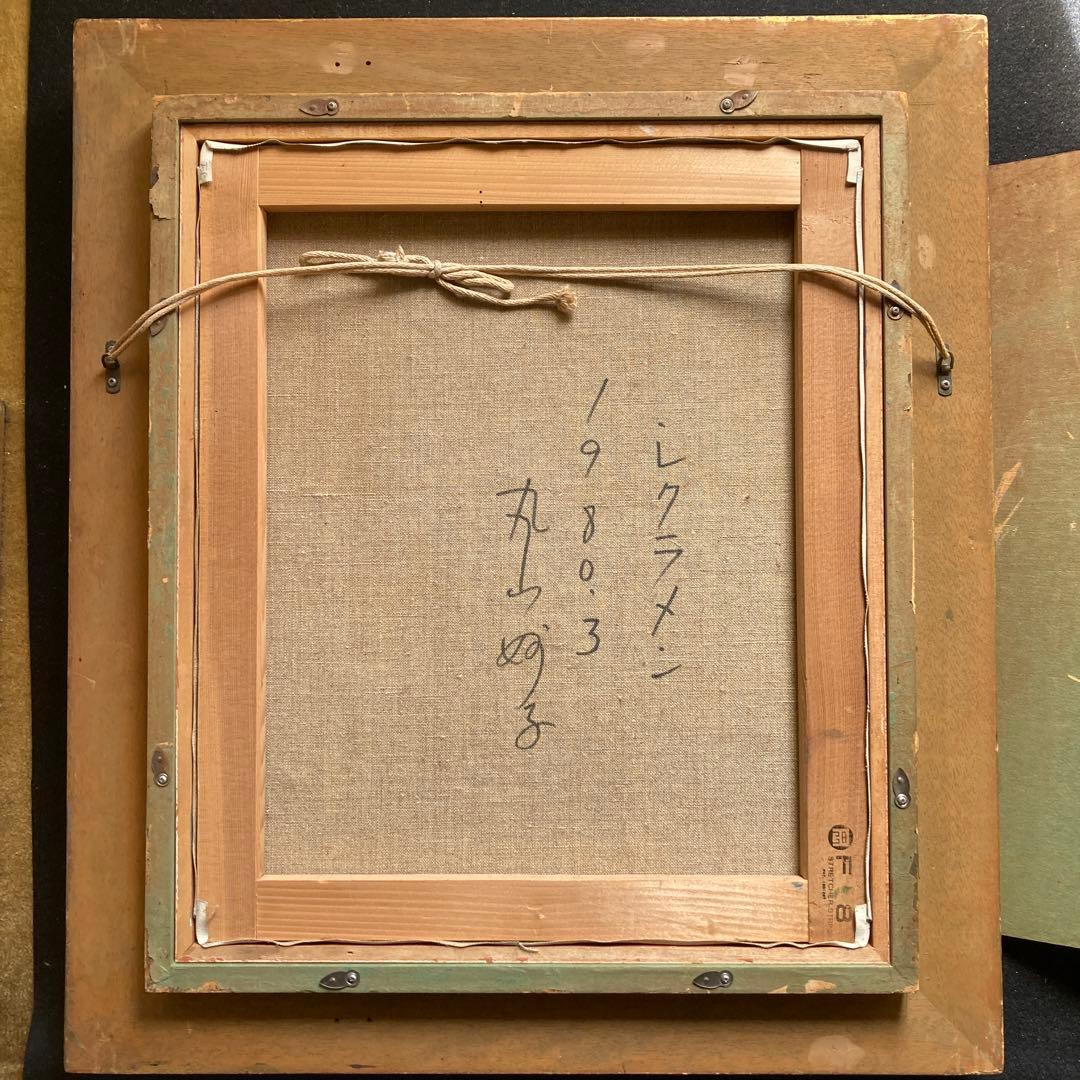 シクラメン
1980.3
丸山妙子
F 8